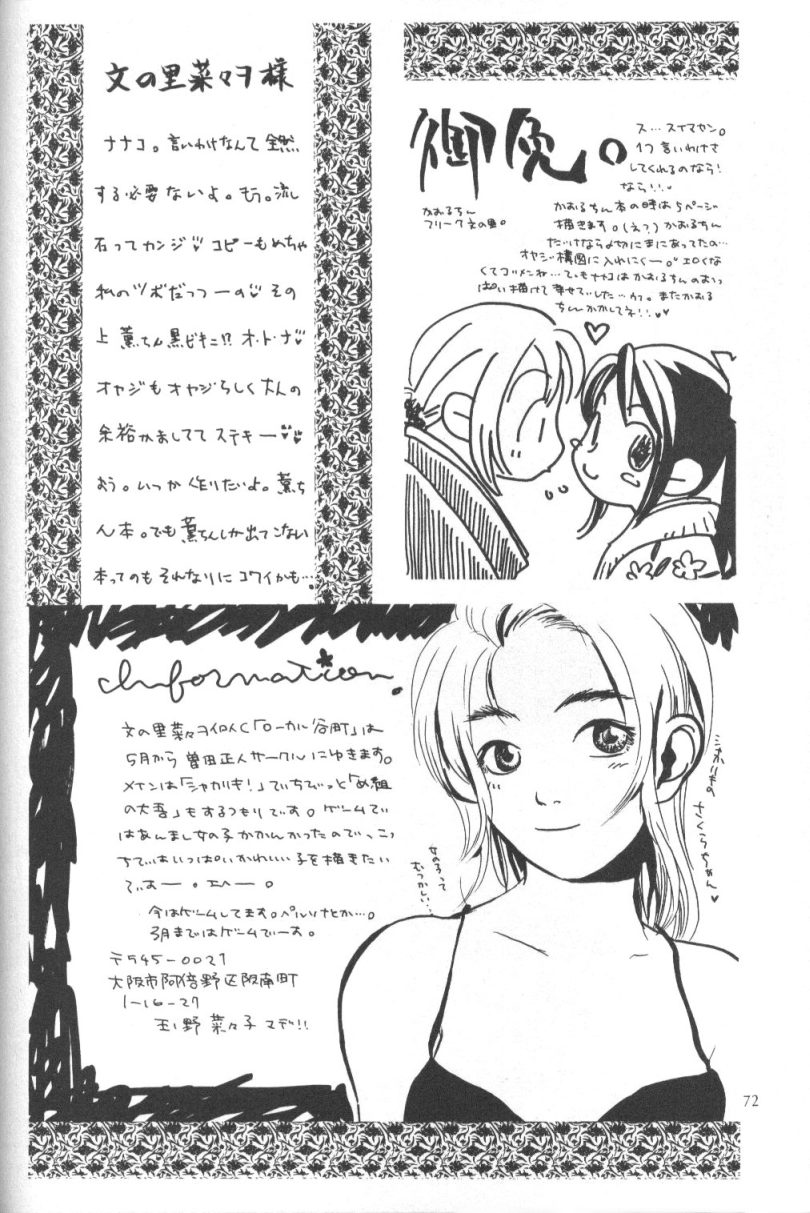 文の里菜々ヲ様
ナナコ。言いわけなんて全然
する必要ないよ。もう。流
石ってカンジ♥コピーもめちゃ
私のツボだっつーの♥その
上薫ちん黒ビキニ!?オ・ト・ナ♥
オヤジもオヤジらしく大人の
余裕かましててステキー♥♥
おう。いつか作りたいよ。薫ち
ん本。でも薫ちんしか出てこない
本ってのもそれなりにコワイかも…
御免。
ス…スイマセン。
1つ言いわけさ
してくれるのなら!
なら!!♥
かおるちん
フリーク文の里。
かおるちん本の時は5ページ
描きます。(え?)かおるちん
だけなら〆切にまにあってたの…
オヤジ構図に入れにくー。エロくな
くてゴメンね…でもナナコはかおるちんのおっ
ぱい描けて幸せでした…ウフ。またかおる
ちんかかしてネ!!♥♥
Information.
文の里菜々ヲイロイC「ローカル谷町」は
5月から曽田正人サークルにゆきます。
メインは「シャカリキ!」でちびっと「め組
の大吾」もするつもりです。ゲームで
はあんまし女の子かかんかったので、こっ
ちではいっぱいかわいい子を描きたい
でぃすー。エヘー。
今はゲームしてます。ペルソナとか…。
3月まではゲームでーす。
〒545-0021
大阪市阿倍野区阪南町
1-16-27
玉野菜々子マデ!!
女の子って
むつかしい…
シャカリキの さくらちゃん♥
72